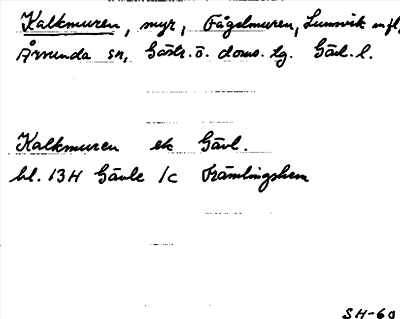 Kalkmuren, myr, Fågelmuren, Lumsvik m fl,
Årsunda sn, Gästr. ö. doms. lg. Gävl. l.
Kalkmuren ek Gävl.
bl. 13H Gävle 1c Främlingshem
SH-60